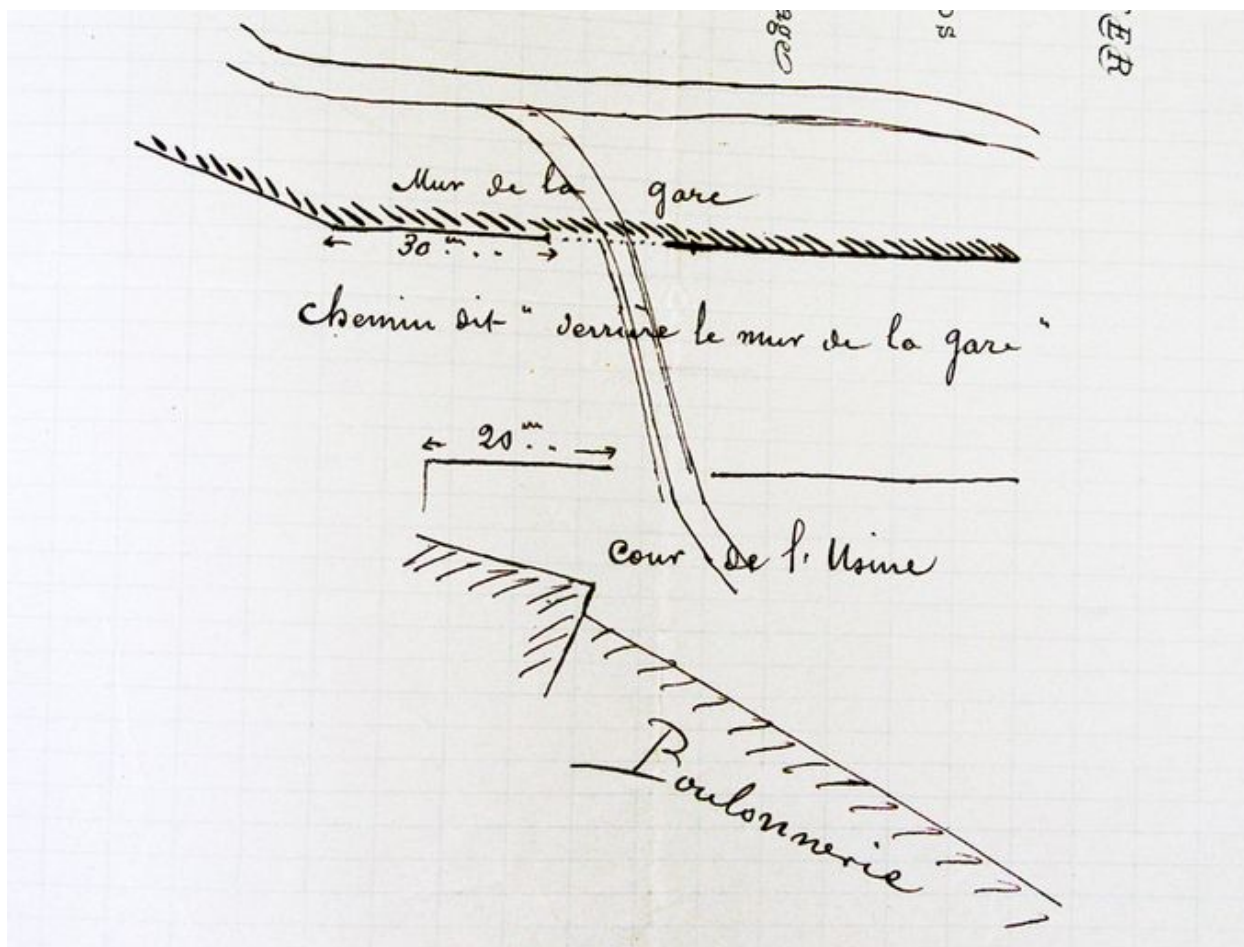 ER
os
age
Mur de la gare
30 m..
chemin dit " derrière le mur de la gare "
20 m..
Cour de l'Usine
Boulonnerie